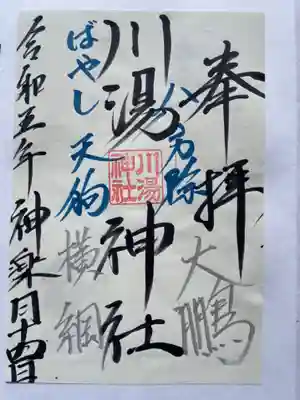 奉拝
大鵬
八方除
川湯神社
川湯
神社
ばやし天狗
横綱
令和五年神楽月十四日